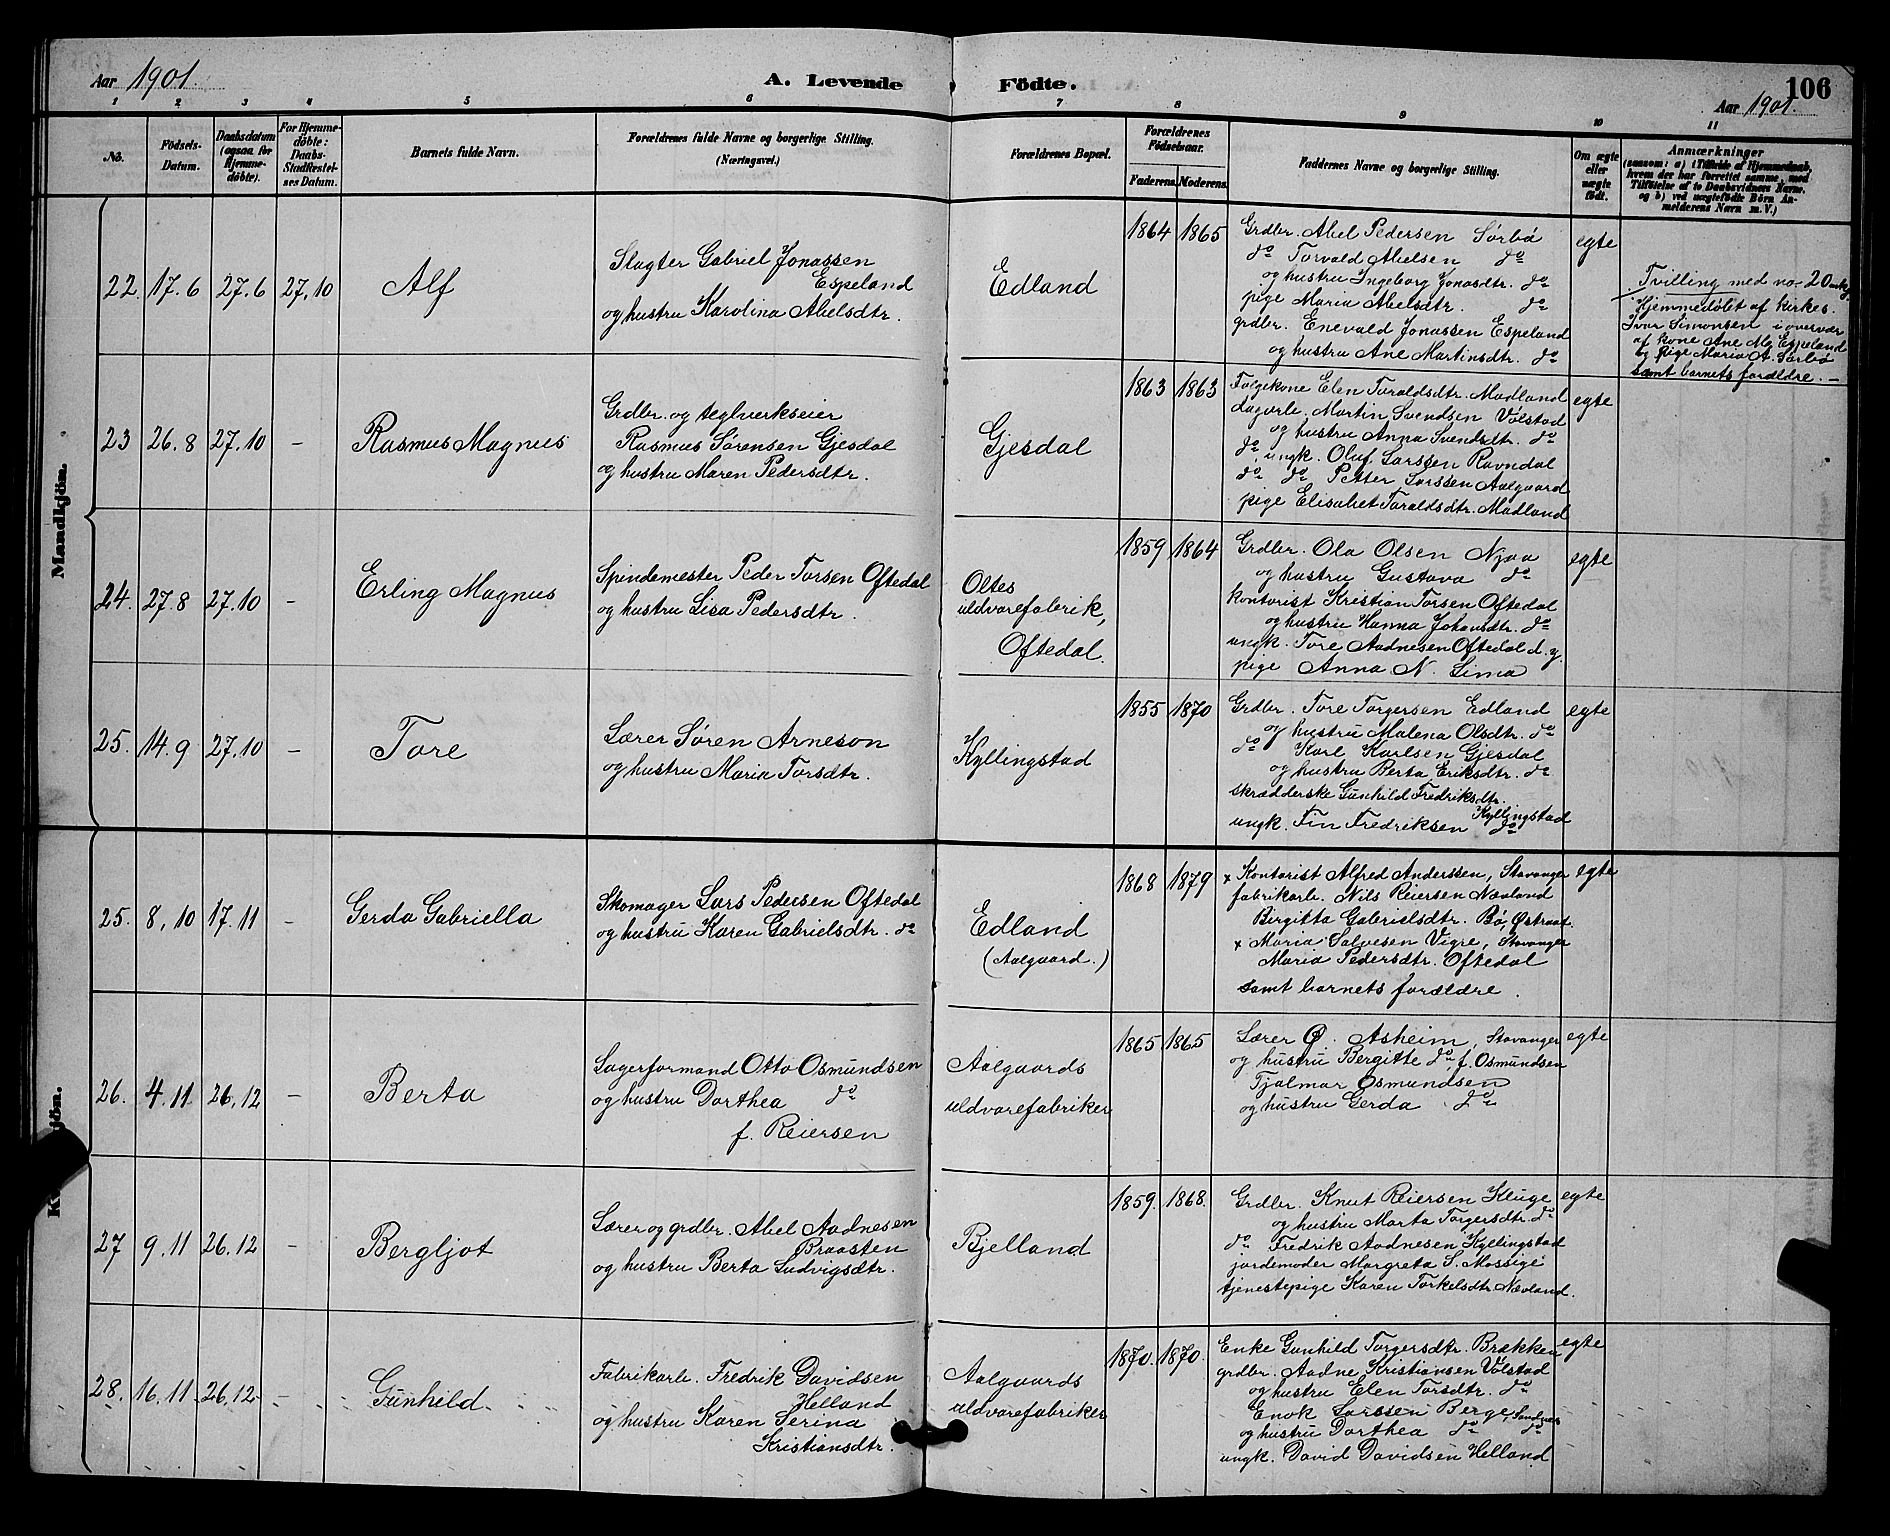 Aar 1901.
A. Levende Födte.
106
Aar 1901.
1 2 3 4 5 6 7 8 9 10 11
No.
Födsels-
Datum.
Daabsdatum
(ogsaa for
Hjemme-
döbte).
For Hjemme-
döbte:
Daabs-
Stadfæstel-
ses Datum.
Barnets fulde Navn.
Forældrenes fulde Navne og borgerlige Stilling.
(Næringsvei.)
Forældrenes Bopæl.
Forældrenes
Födselsaar.
Faderens. Moderens.
Faddernes Navne og borgerlige Stilling.
Om ægte
eller
uægte
födt.
Anmærkninger
(saasom: a) i Tilfælde af Hjemmedaab,
hvem der har forrettet samme, med
Tilföielse af to Daabsvidners Navne,
og b) ved uægtefödte Börn An-
melderens Navn m. V.)
Mandkjön.
22. 17.6 27.6 27.10 Alf
Slagter Gabriel Jonassen
Espeland
og hustru Karolina Abelsdtr.
Edland
1864 1865
Grdbr. Abel Pedersen Sørbø
do Torvald Abelsen do
og hustru Ingeborg Jonasdtr. do
pige Maria Abelsdtr. do
grdbr. Enevald Jonassen Espeland
og hustru Ane Martinsdtr. do
egte
Tvilling med no 20
Hjemmedøbt af kirkes.
Ivar Simonsen i overvær
af kone Ane M. Espeland
og pige Maria A. Sørbø
samt barnets forældre. –
23 26.8 27.10 – Rasmus Magnus
Grdbr. og teglverkseier
Rasmus Sørensen Gjesdal
og hustru Maren Pedersdtr.
Gjesdal
1863 1863
Følgekone Elen Taraldsdtr. Madland
dagarb. Martin Svendsen Vølstad
og hustru Anna Svendsdtr. do
do ungk. Oluf Larssen Ravndal
do do Petter Larssen Aalgaard
pige Elisabet Taraldsdtr. Madland
egte
24. 27.8 27.10 – Erling Magnus
Spindemester Peder Torsen Oftedal
og hustru Lisa Pedersdtr.
Oltes
uldvarefabrik,
Oftedal.
1859 1864
Grdbr. Ola Olsen Njaa
og hustru Gustava do
kontorist Kristian Torsen Oftedal
og hustru Hanna Johansdtr. do
ungk. Tore Aadnesen Oftedal d.y.
pige Anna N. Lima
egte
25. 14.9 27.10 – Tore
Lærer Søren Arneson
og hustru Maria Torsdtr.
Kyllingstad
1855 1870
Grdbr. Tore Torgersen Edland
og hustru Malena Olsdtr. do
do Karl Karlsen Gjesdal
og hustru Berta Eriksdtr. do
skrædderske Gunhild Fredriksdtr.
Kyllingstad
ungk. Fin Fredriksen do
egte
25. 8.10 17.11 – Gerda Gabriella
Skomager Lars Pedersen Oftedal
og hustru Karen Gabrielsdtr. do
Edland
(Aalgaard.)
1868 1879
x Kontorist Alfred Anderssen, Stavanger
fabrikarb. Nils Reiersen Nævland
Birgitta Gabrielsdtr. Bø, Østraat.
x Maria Salvesen Vigre, Stavanger
Maria Pedersdtr. Oftedal
samt barnets forældre.
egte
26. 4.11 26.12 – Berta
Lagerformand Otto Osmundsen
og hustru Dorthea do
f. Reiersen
Aalgaards
uldvarefabriker
1865 1865
Lærer O. Asheim, Stavanger
og hustru Bergitte do, f. Osmundsen
Tjalmar Osmundsen
og hustru Gerda do
egte
27 9.11 26.12 – Bergljot
Lærer og grdbr. Abel Aadnesen
Braasten
og hustru Berta Ludvigsdtr.
Bjelland
1859. 1868.
Grdbr. Knut Reiersen Kluge
og hustru Marta Torgersdtr. do
do Fredrik Aadnesen Kyllingstad
jordemoder Margreta S. Mossige
tjenestepige Karen Torkelsdtr. Nævland.
egte
28. 16.11 26.12 – Gunhild
Fabrikarb. Fredrik Davidsen
Helland
og hustru Karen Serina
Kristiansdtr.
Aalgaards
uldvarefabriker
1870. 1870.
Enke Gunhild Torgersdtr. Brækken
grdbr. Aadne Kristiansen Vølstad
og hustru Elen Torsdtr. do
Enok Larssen Berge, Sandnes
og hustru Dorthea do do
ungk. David Davidsen Helland
egte